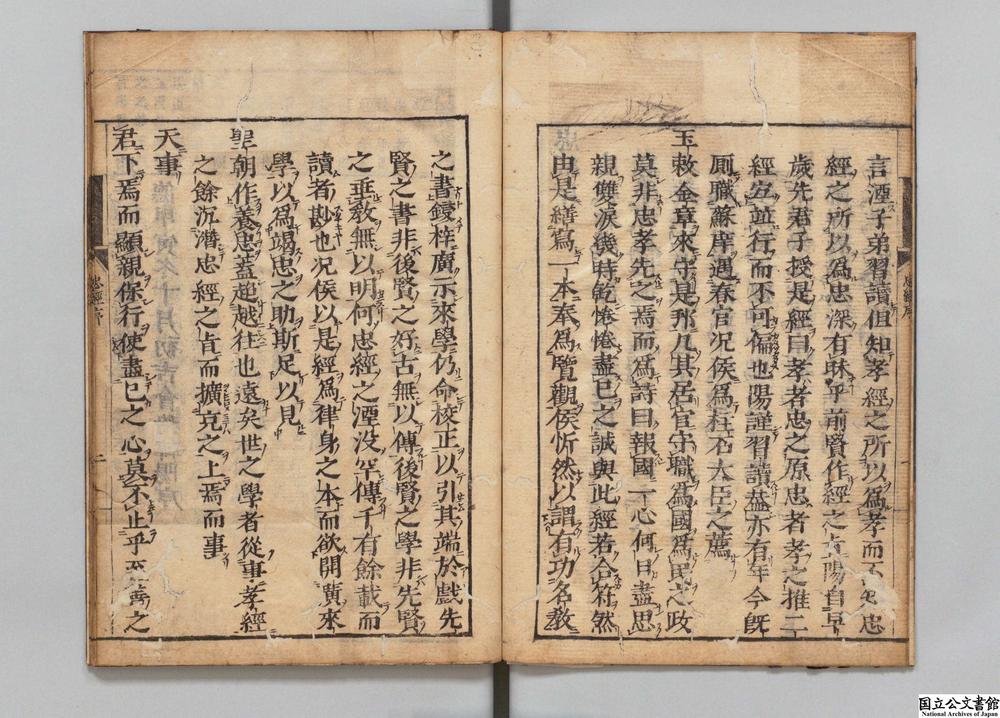 言湮子弟習讀但知孝經之所以爲孝而不知忠
經之所以爲忠深有昧乎前賢作經之㫖陽自早
歲先君子授是經曰孝者忠之原忠者孝之推二
經宜並行而不可偏也陽謹習讀葢亦有年今旣
厠職蘇庠遇春官况侯爲柱石大臣之薦
玉敕金章來守是邦凡其居官守職爲國爲民之政
莫非忠孝先之焉而爲詩曰報國一心何日盡思
親雙淚幾時乾惓惓盡已之誠與此經若合符然
由是繕寫一本奉爲覽觀侯忻然以謂有功名敎
忠經序
一
之書鋟梓廣示來學仍命校正以引其端於戲先
賢之書非後賢之好古無以傳後賢之學非先賢
之垂敎無以明何忠經之湮没罕傳千有餘載而
讀者尠也况侯以是經爲律身之本而欲開廣來
學以爲竭忠之助斯足以見
聖朝作養忠藎超越往也遠矣世之學者從事孝經
之餘沉潛忠經之㫖而擴充之上焉而事
天事
君下焉而顯親保行使盡已之心莫不止乎至善之
忠經序
二
国立公文書館
National Archives of Japan